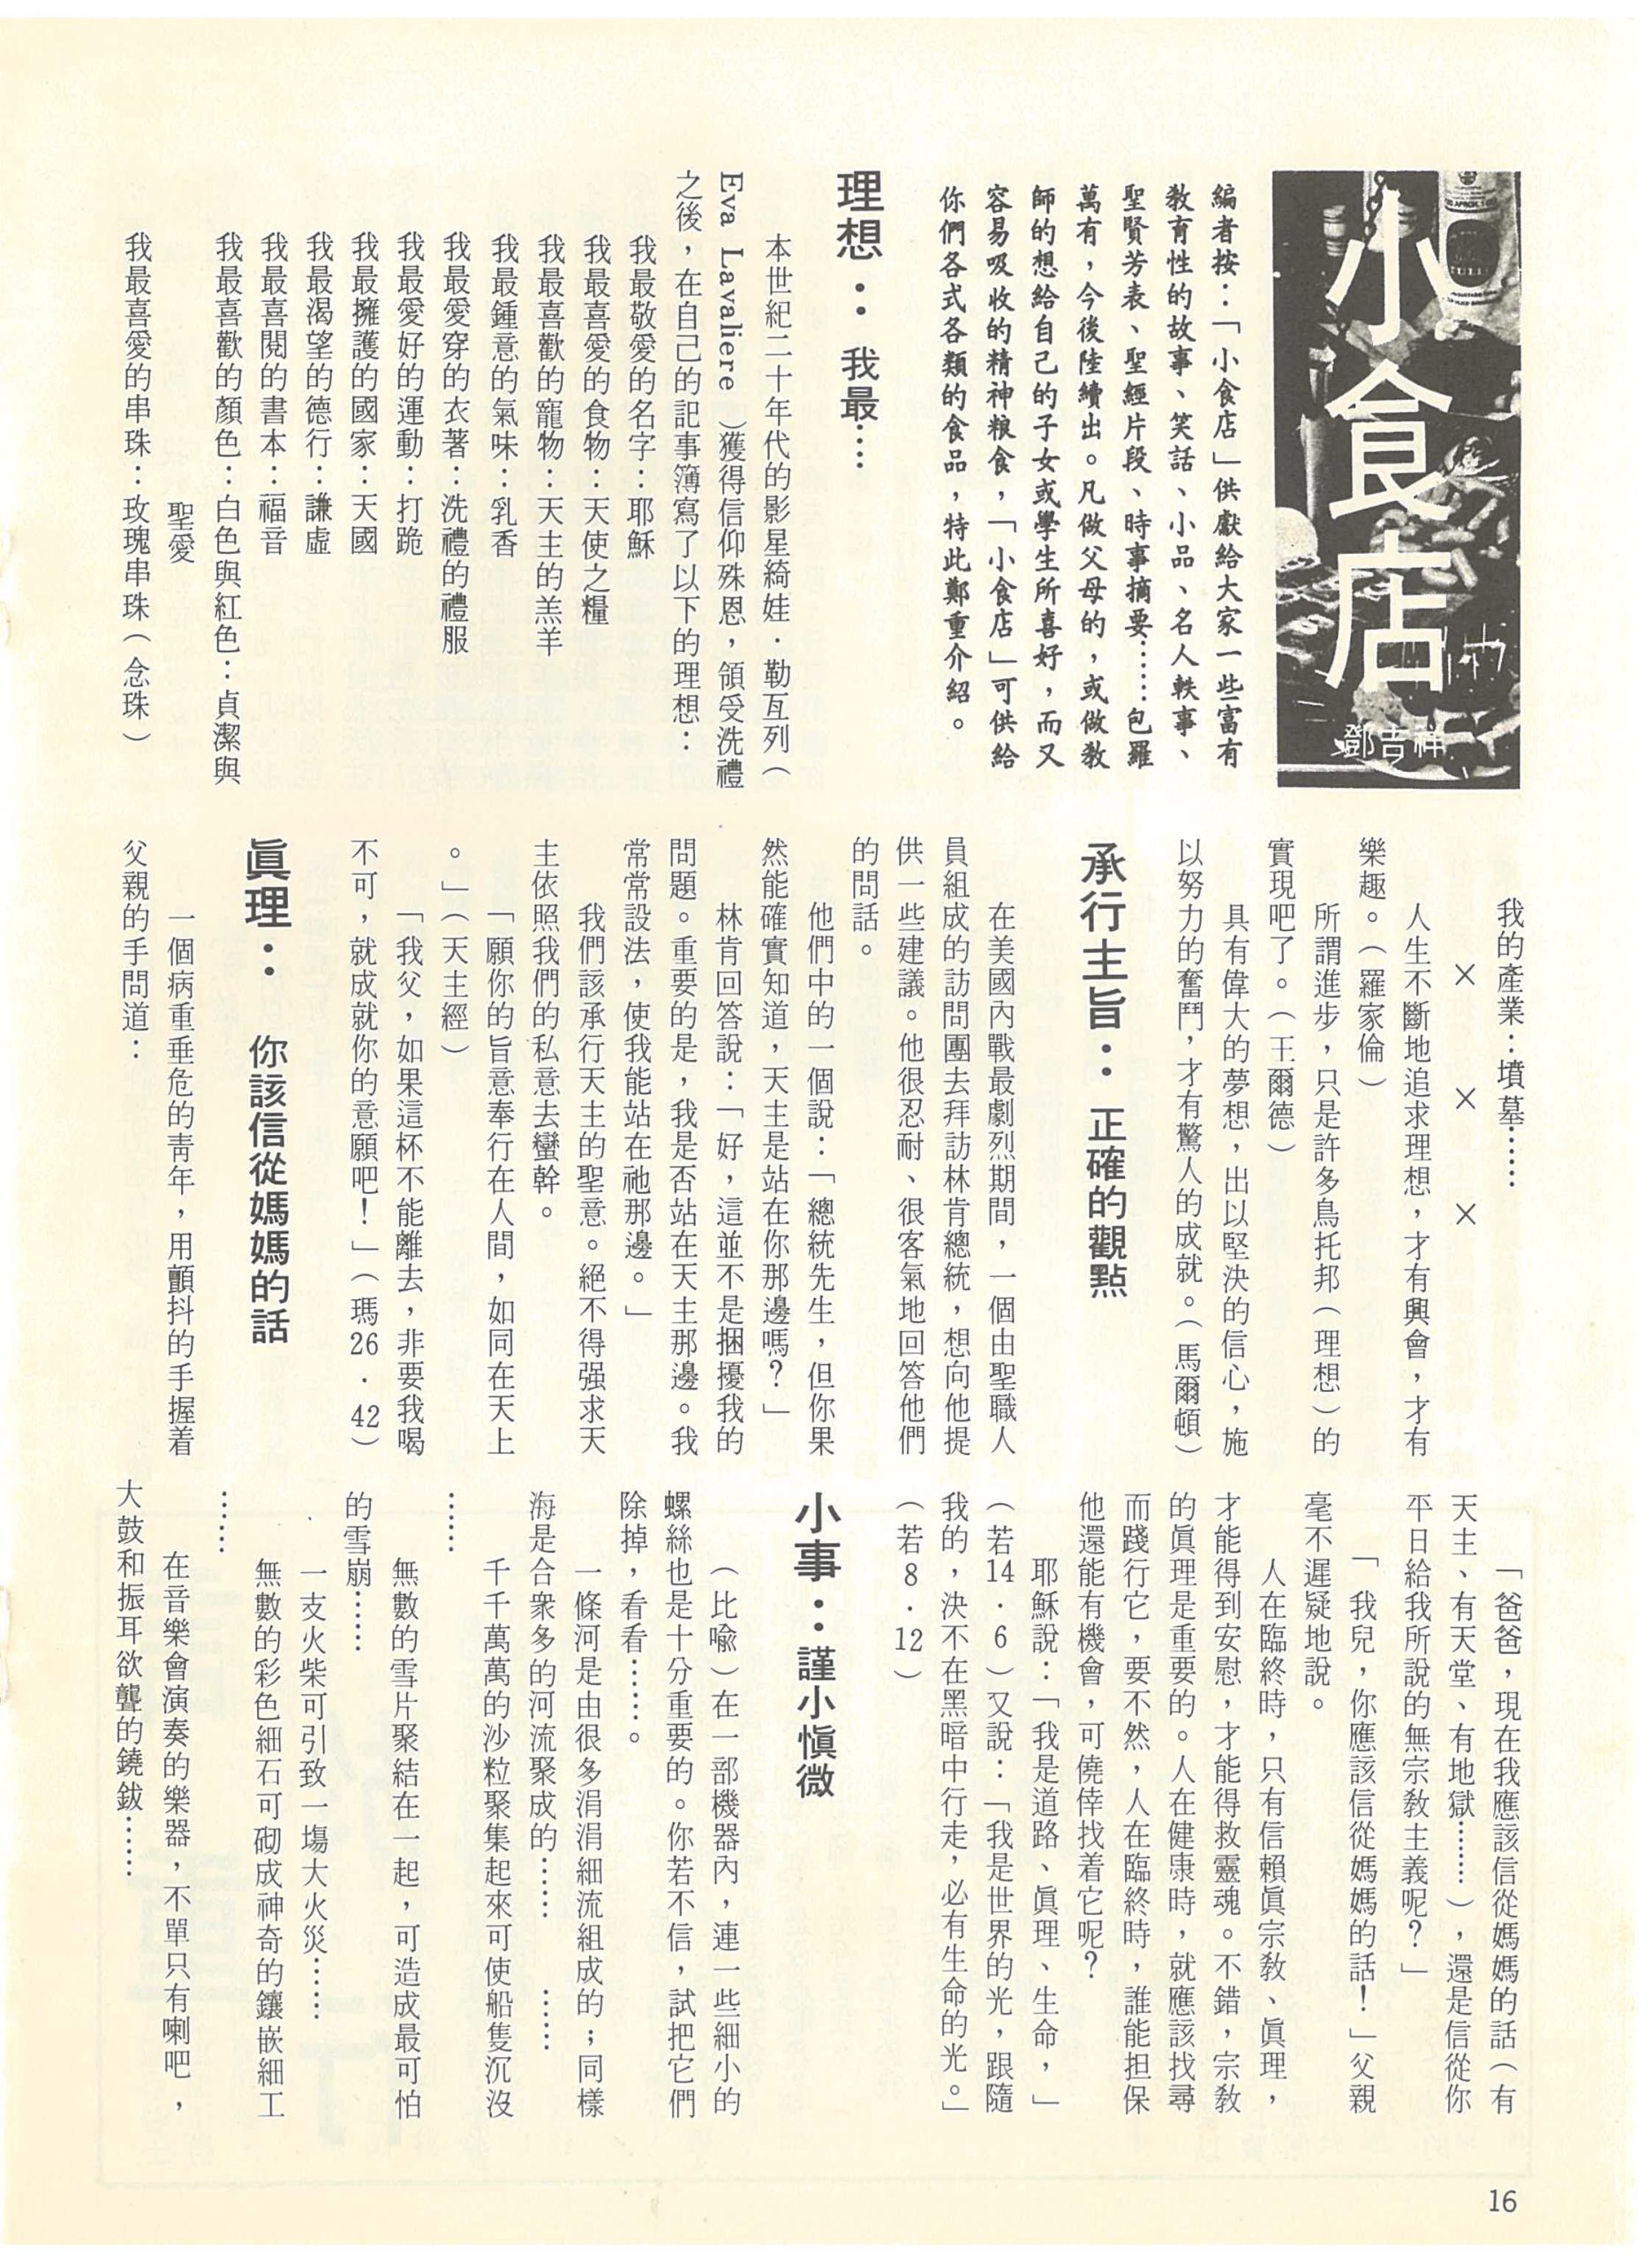 小食店
鄧吉祥
編者按：「小食店」供獻給大家一些富有
教育性的故事、笑話、小品、名人軼事、
聖賢芳表、聖經片段、時事摘要……包羅
萬有，今後陸續出。凡做父母的，或做教
師的想給自己的子女或學生所喜好，而又
容易吸收的精神粮食，「小食店」可供給
你們各式各類的食品，特此鄭重介紹。
理想：我最……
本世紀二十年代的影星綺娃．勒互列（
Eva Lavaliere）獲得信仰殊恩，領受洗禮
之後，在自己的記事簿寫了以下的理想：
我最敬愛的名字：耶穌
我最喜愛的食物：天使之糧
我最喜歡的寵物：天主的羔羊
我最鍾意的氣味：乳香
我最愛穿的衣著：洗禮的禮服
我最愛好的運動：打跪
我最擁護的國家：天國
我最渴望的德行：謙虛
我最喜閱的書本：福音
我最喜歡的顏色：白色與紅色：貞潔與
聖愛
我最喜愛的串珠：玫瑰串珠（念珠）
我的產業：墳墓……
×　×　×
人生不斷地追求理想，才有興會，才有
樂趣。（羅家倫）
所謂進步，只是許多烏托邦（理想）的
實現吧了。（王爾德）
具有偉大的夢想，出以堅決的信心，施
以努力的奮鬥，才有驚人的成就。（馬爾頓）
承行主旨：正確的觀點
在美國內戰最劇烈期間，一個由聖職人
員組成的訪問團去拜訪林肯總統，想向他提
供一些建議。他很忍耐、很客氣地回答他們
的問話。
他們中的一個說：「總統先生，但你果
然能確實知道，天主是站在你那邊嗎？」
林肯回答說：「好，這並不是捆擾我的
問題。重要的是，我是否站在天主那邊。我
常常設法，使我能站在祂那邊。」
我們該承行天主的聖意。絕不得强求天
主依照我們的私意去蠻幹。
「願你的旨意奉行在人間，如同在天上
。」（天主經）
「我父，如果這杯不能離去，非要我喝
不可，就成就你的意願吧！」（瑪26．42）
眞理：你該信從媽媽的話
一個病重垂危的青年，用顫抖的手握着
父親的手問道：
「爸爸，現在我應該信從媽媽的話（有
天主、有天堂、有地獄……），還是信從你
平日給我所說的無宗教主義呢？」
「我兒，你應該信從媽媽的話！」父親
毫不遲疑地說。
人在臨終時，只有信賴眞宗教、眞理，
才能得到安慰，才能得救靈魂。不錯，宗教
的眞理是重要的。人在健康時，就應該找尋
而踐行它，要不然，人在臨終時，誰能担保
他還能有機會，可僥倖找着它呢？
耶穌說：「我是道路、眞理、生命，」
（若14．6）又說：「我是世界的光，跟隨
我的，決不在黑暗中行走，必有生命的光。」
（若8．12）
小事：謹小愼微
（比喩）在一部機器內，連一些細小的
螺絲也是十分重要的。你若不信，試把它們
除掉，看看……。
一條河是由很多涓涓細流組成的；同樣
海是合衆多的河流聚成的……　……
千千萬萬的沙粒聚集起來可使船隻沉沒
……
無數的雪片聚結在一起，可造成最可怕
的雪崩……
一支火柴可引致一塲大火災……
無數的彩色細石可砌成神奇的鑲嵌細工
……
在音樂會演奏的樂器，不單只有喇吧，
大鼓和振耳欲聾的鐃鈸……
16